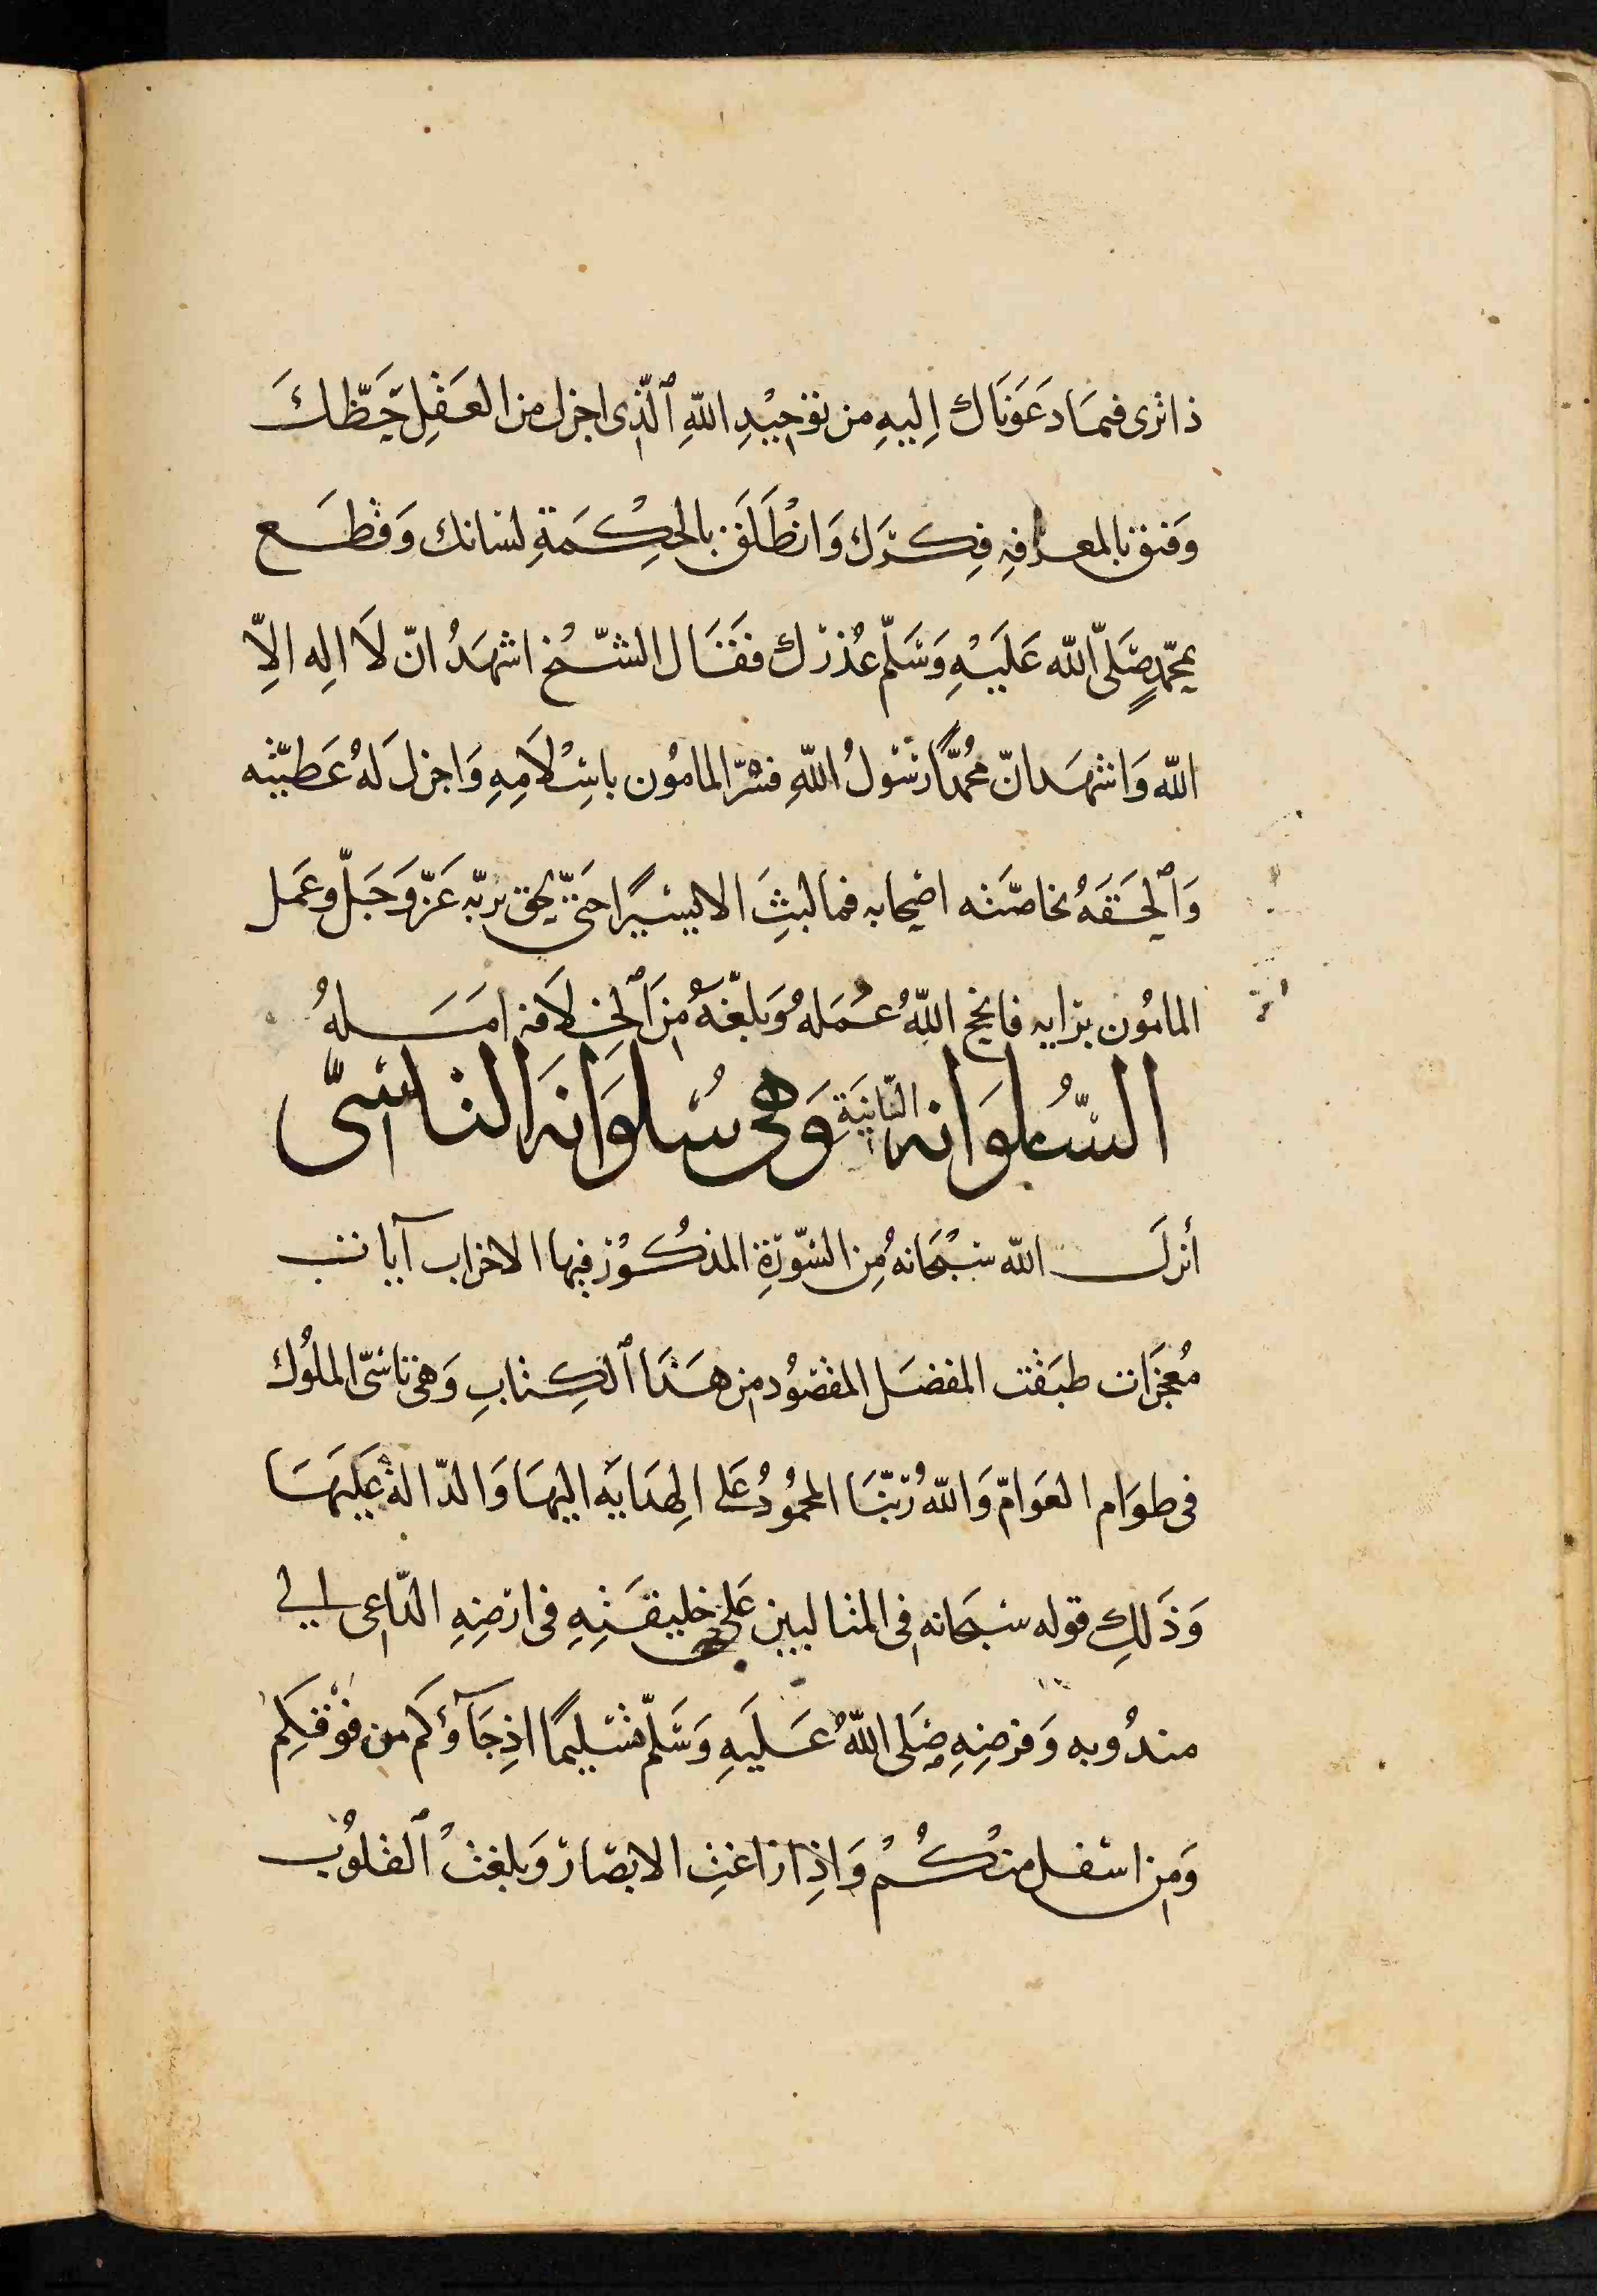 ذا ترى فيما دعوناك اليه من توحيد الله الذى اجزل من العقل حظك
وفتق بالمعرفة فكرك وانطلق بالحكمة لسانك وقطع
بمحمد صلى الله عليه وسلم عذرك فقال الشيخ اشهد ان لا اله الا
الله واشهد ان محمدا رسول الله فسر المامون باسلامه واجزل له عطيته
والحقه بخاصته اصحابه فما لبث الا يسيرا حتى لحق بربه عز وجل وعمل
المامون برايه فانجح الله عمله وبلغه من الخلافة امله
السلوانة الثانية وهى سلوانة التاسى
أنزل الله سبحانه من السورة المذكور فيها الاحزاب آيات
معجزات طبقت المفصل المقصود من هذا الكتاب وهى تاسى الملوك
فى طوام العوام والله ربنا المحمود على الهداية اليها والدالة عليها
وذلك قوله سبحانه فى المتالبين على خليقته فى ارضه الداعى الى
مندوبه وفرضه صلى الله عليه وسلم تسليما اذ جآؤكم من فوقكم
ومن اسفل منكم واذ زاغت الابصار وبلغت القلوب